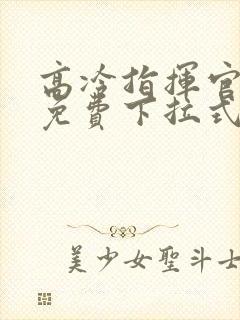 高冷指揮官
免費下拉式
美少女聖斗士